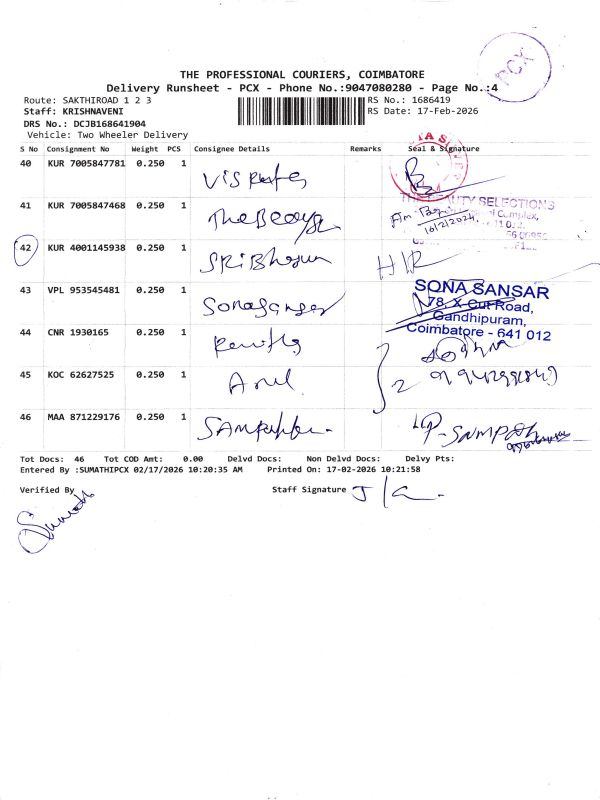 PCX
THE PROFESSIONAL COURIERS, COIMBATORE
Delivery Runsheet - PCX - Phone No.:9047080280 - Page No.:4
Route: SAKTHIROAD 1 2 3
RS No.: 1686419
Staff: KRISHNAVENI
RS Date: 17-Feb-2026
DRS No.: DCJB168641904
Vehicle: Two Wheeler Delivery
S No Consignment No Weight PCS Consignee Details Remarks Seal & Signature
40 KUR 7005847781 0.250 1
41 KUR 7005847468 0.250 1 The Beauty
BEAUTY SELECTIONS
Complex,
16/2/2024
42 KUR 4001145938 0.250 1 SRi Bhagvan
43 VPL 953545481 0.250 1 Sona Sansar
SONA SANSAR
78, X-Cut Road,
Gandhipuram,
Coimbatore - 641 012
44 CNR 1930165 0.250 1
45 KOC 62627525 0.250 1 Arul 2
46 MAA 871229176 0.250 1
Tot Docs: 46 Tot COD Amt: 0.00 Delvd Docs: Non Delvd Docs: Delvy Pts:
Entered By :SUMATHIPCX 02/17/2026 10:20:35 AM Printed On: 17-02-2026 10:21:58
Verified By Staff Signature